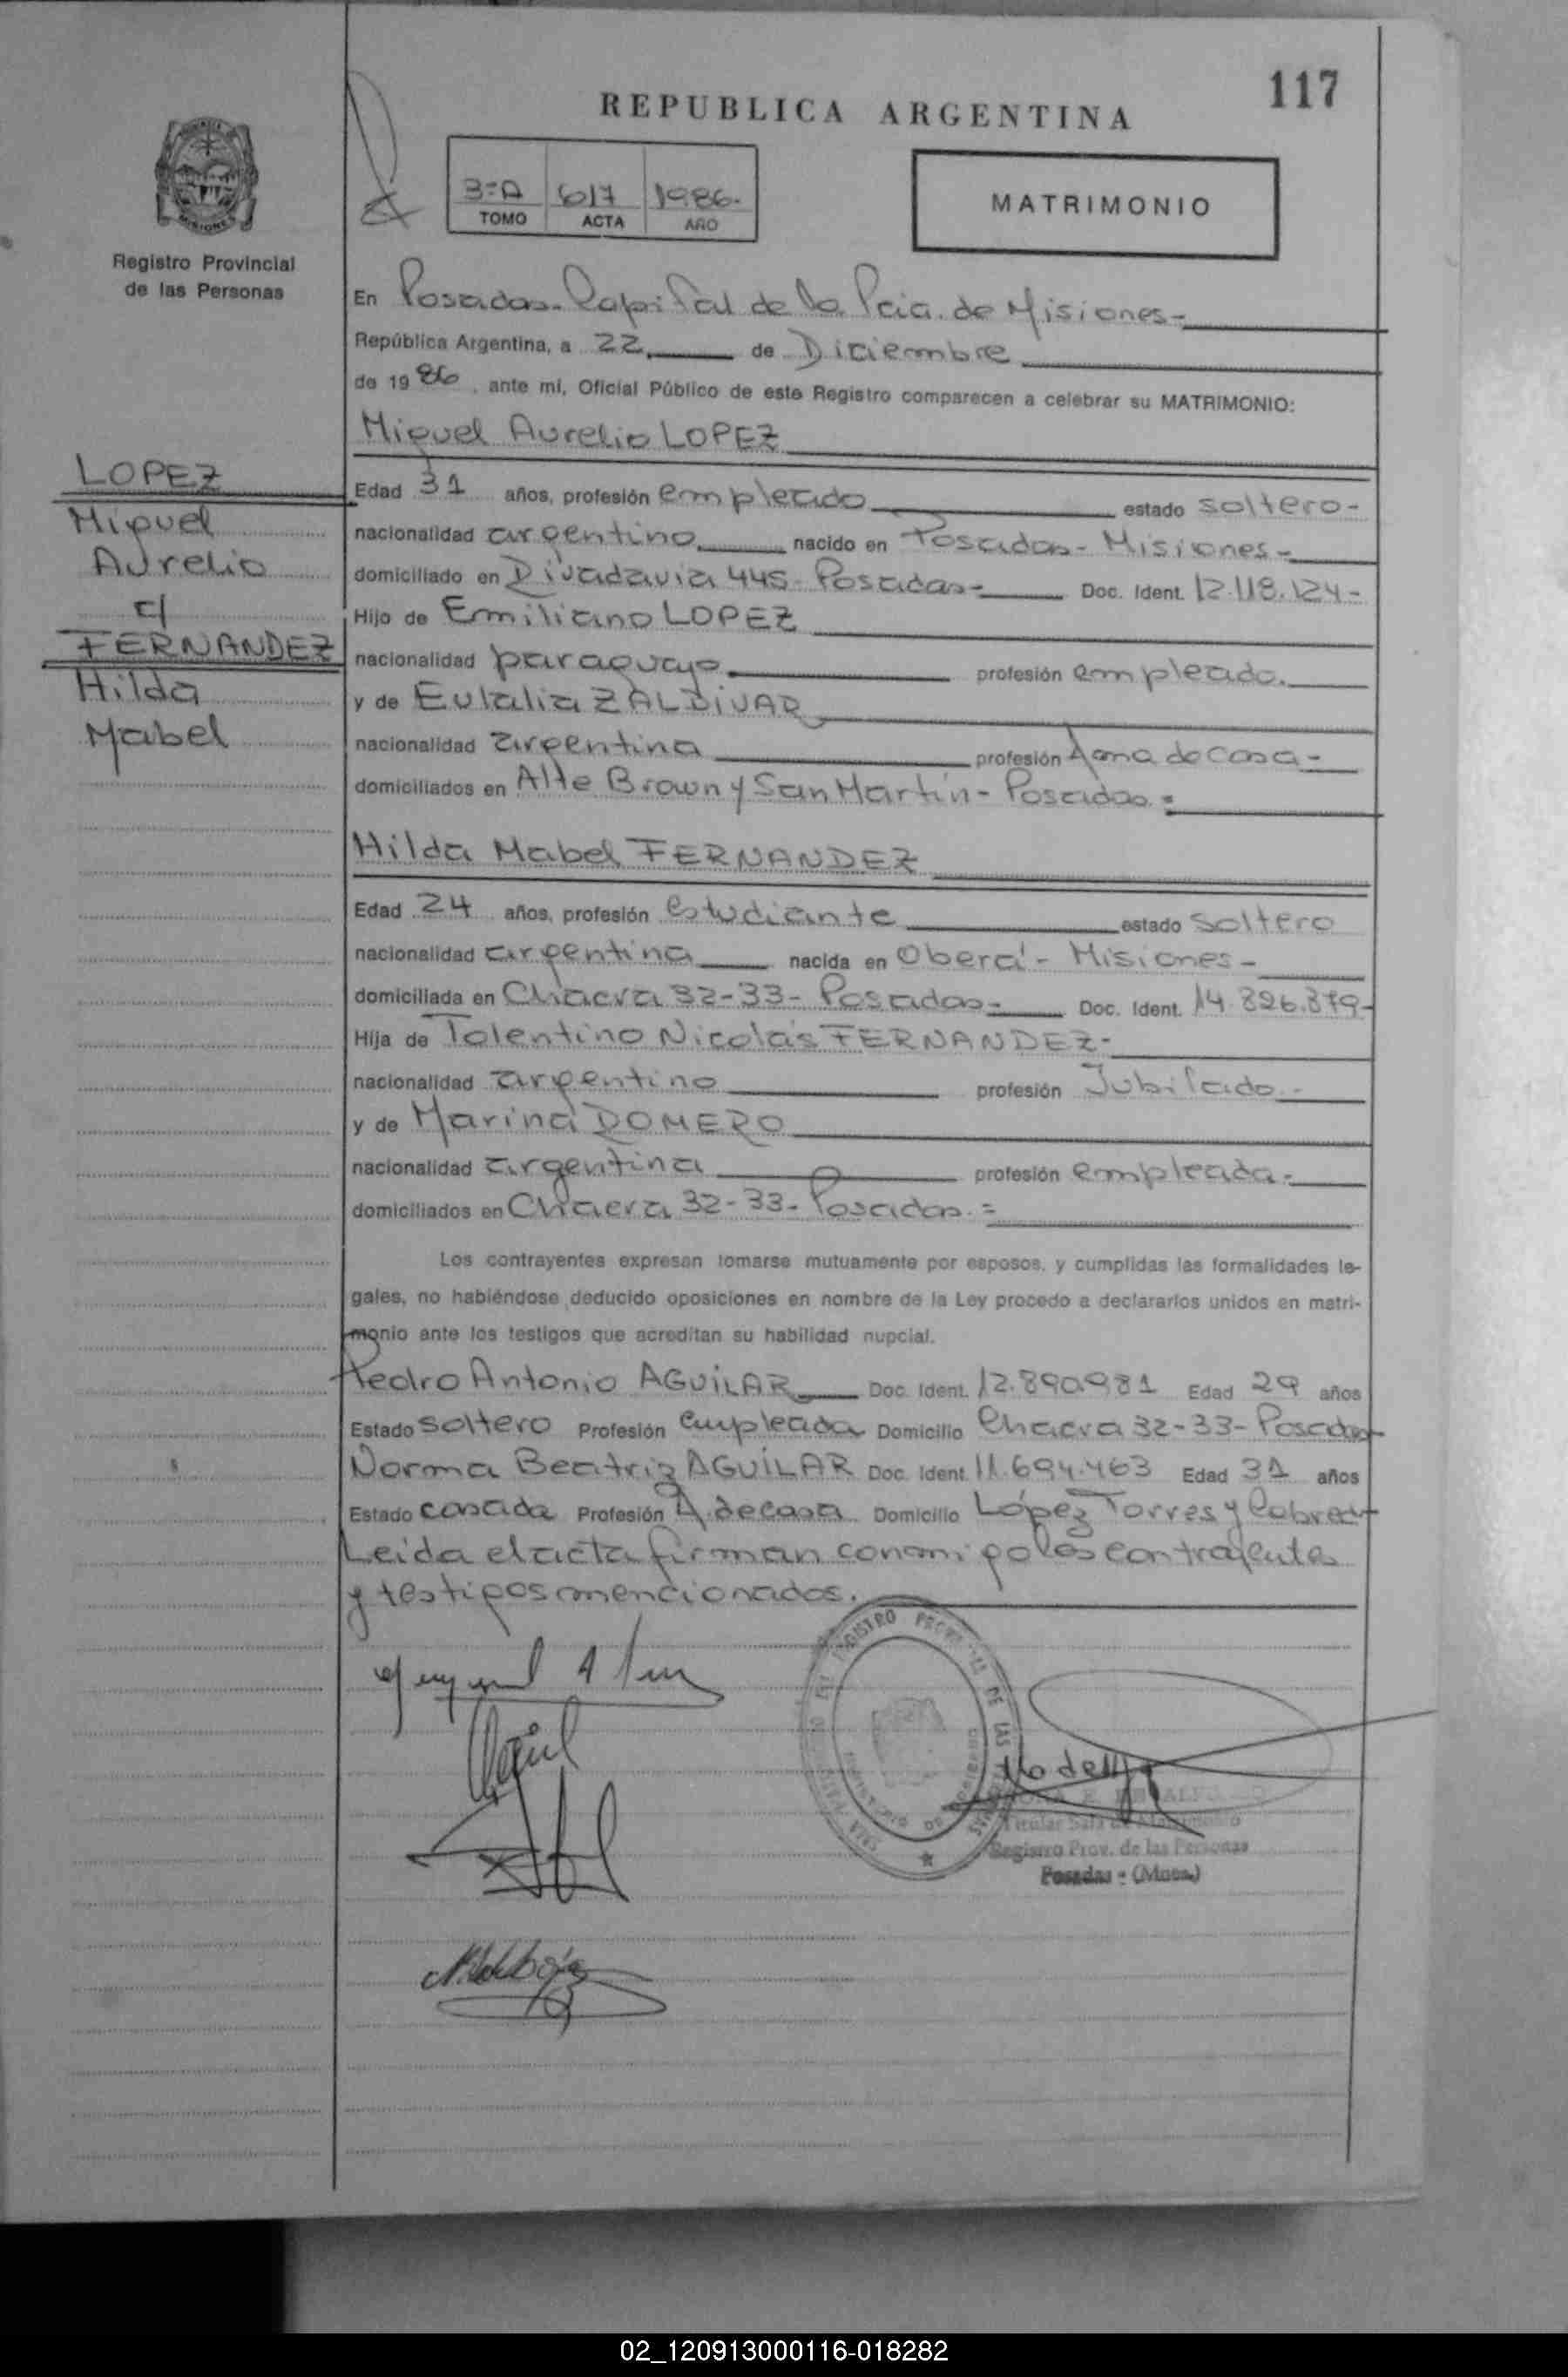 117
REPUBLICA ARGENTINA
3=A 617 1986.
TOMO ACTA AÑO
MATRIMONIO
MISIONES
Registro Provincial
de las Personas
LOPEZ
Miguel
Aurelio
c/
FERNANDEZ
Hilda
Mabel
En Posadas-Capital de la Pcia. de Misiones-
República Argentina, a 22 de Diciembre
de 19 86, ante mí, Oficial Público de este Registro comparecen a celebrar su MATRIMONIO:
Miguel Aurelio LOPEZ
Edad 31 años, profesión empleado estado soltero-
nacionalidad argentino nacido en Posadas- Misiones-
domiciliado en Rivadavia 445- Posadas- Doc. Ident. 12.118.124-
Hijo de Emiliano LOPEZ
nacionalidad paraguayo profesión empleado.
y de Eulalia ZALDIVAR
nacionalidad argentina profesión Ama de casa-
domiciliados en Alte Brown y San Martín- Posadas.=
Hilda Mabel FERNANDEZ
Edad 24 años, profesión estudiante estado soltero
nacionalidad argentina nacida en Oberá- Misiones-
domiciliada en Chacra 32-33- Posadas- Doc. Ident. 14.826.879-
Hija de Tolentino Nicolás FERNANDEZ-
nacionalidad argentino profesión Jubilado.-
y de Marina ROMERO
nacionalidad argentina profesión empleada-
domiciliados en Chacra 32-33- Posadas.=
Los contrayentes expresan tomarse mutuamente por esposos, y cumplidas las formalidades le-
gales, no habiéndose deducido oposiciones en nombre de la Ley procedo a declararlos unidos en matri-
monio ante los testigos que acreditan su habilidad nupcial.
Pedro Antonio AGUILAR Doc. Ident. 12.890.981 Edad 29 años
Estado soltero Profesión empleada Domicilio Chacra 32-33- Posadas
Norma Beatriz AGUILAR Doc. Ident. 11.694.463 Edad 31 años
Estado casada Profesión A. de casa Domicilio López Torres y Cabred
Leida el acta firman conmigo los contrayentes
y testigos mencionados.
REGISTRO DE LAS
Titular Sala de Matrimonio
Registro Prov. de las Personas
Posadas - (Mnes.)
02_120913000116-018282